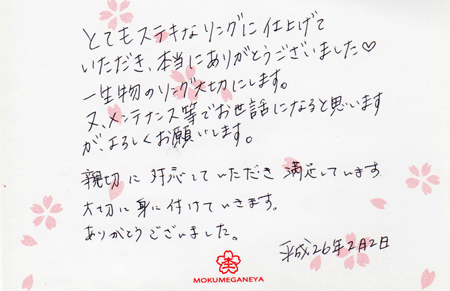 とてもステキなリングに仕上げて
いただき、本当にありがとうございました♡
一生物のリング大切にします。
又、メンテナンス等でお世話になると思います
が、よろしくお願いします。
親切に対応していただき満足しています
大切に身に付けていきます。
ありがとうございました。
平成26年2月2日
MOKUMEGANEYA